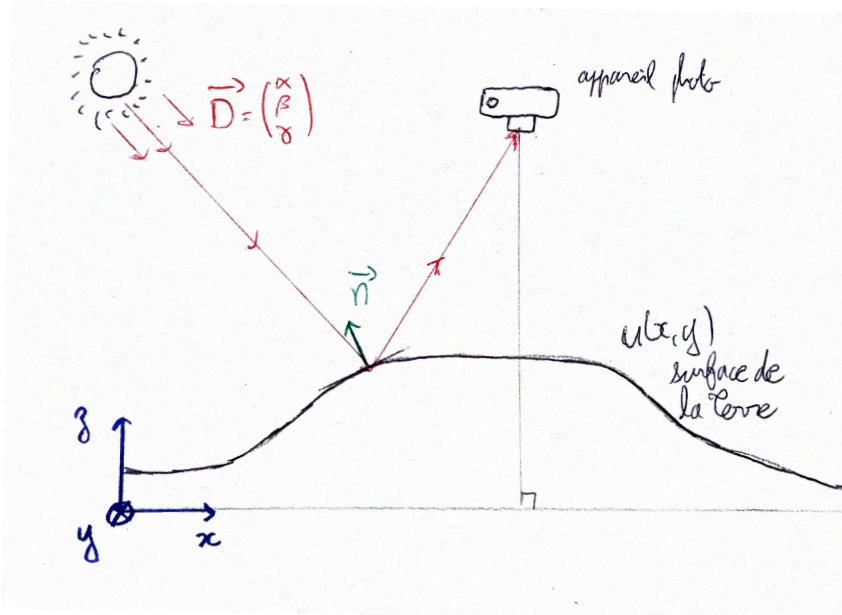 D = (α β γ)
appareil photo
n
u(x,y)
surface de
la Terre
z
y
x